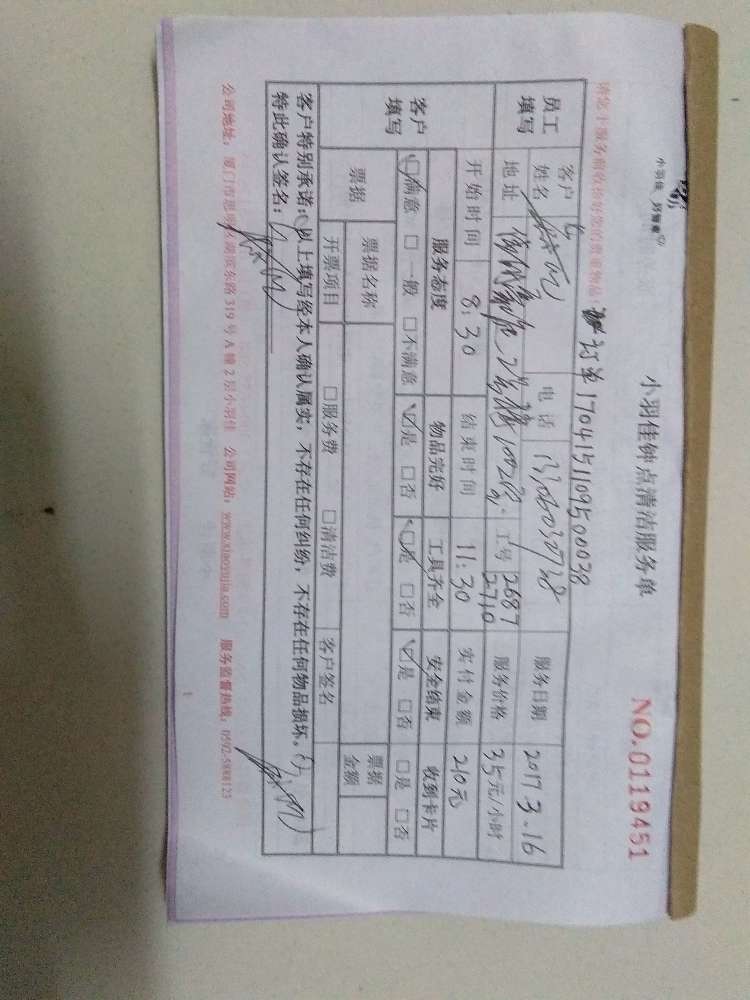 小羽佳 好智家
小羽佳钟点清洁服务单
NO.0119451
请您于服务前收好您的贵重物品!
订单170415110950003 8
员工填写
客户姓名
电话
服务日期 2017.3.16
地址
工号 2687 2710
服务价格 35元/小时
开始时间 8:30
结束时间 11:30
实付金额 210元
客户填写
服务态度 物品完好 工具齐全 安全结束 收到卡片
☑满意 □一般 □不满意 ☑是 □否 ☑是 □否 ☑是 □否 □是 □否
票据
票据名称
票据金额
开票项目 □服务费 □清洁费 客户签名
客户特别承诺:以上填写经本人确认属实,不存在任何纠纷,不存在任何物品损坏。
特此确认签名:
公司地址:厦门市思明区湖滨东路319号A幢2层小羽佳 公司网站:www.xiaoyujia.com 服务监督热线:0592-5888123
1